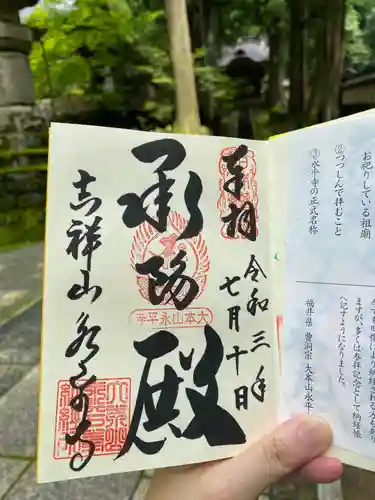 奉拝
令和三年
七月十日
承陽殿
大本山永平寺
吉祥山永平寺
お祀りしている祖廟
②つつしんで拝むこと
③永平寺の正式名称
ますが、多くは参拝記念と
へ記すようになりました。
福井県 曹洞宗 大本山永平